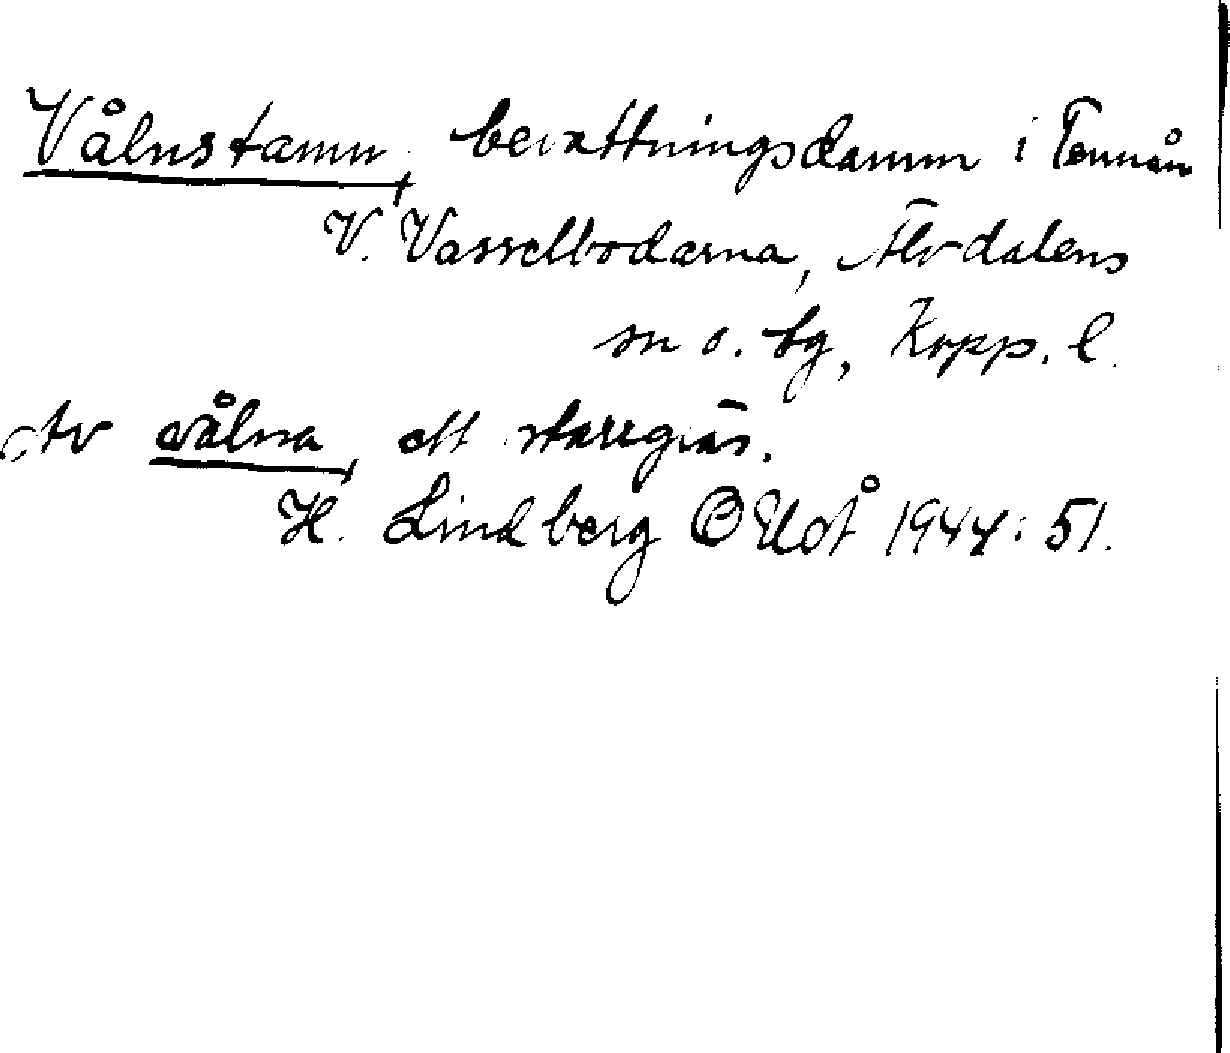 Vålnstamn, bevattningsdamm i Tennån
V. Vasselbodarna, Älvdalens
sn o. tg, Kopp. l.
Av vålna, ett starrgräs.
H. Lindberg OUoÅ 1944: 51.